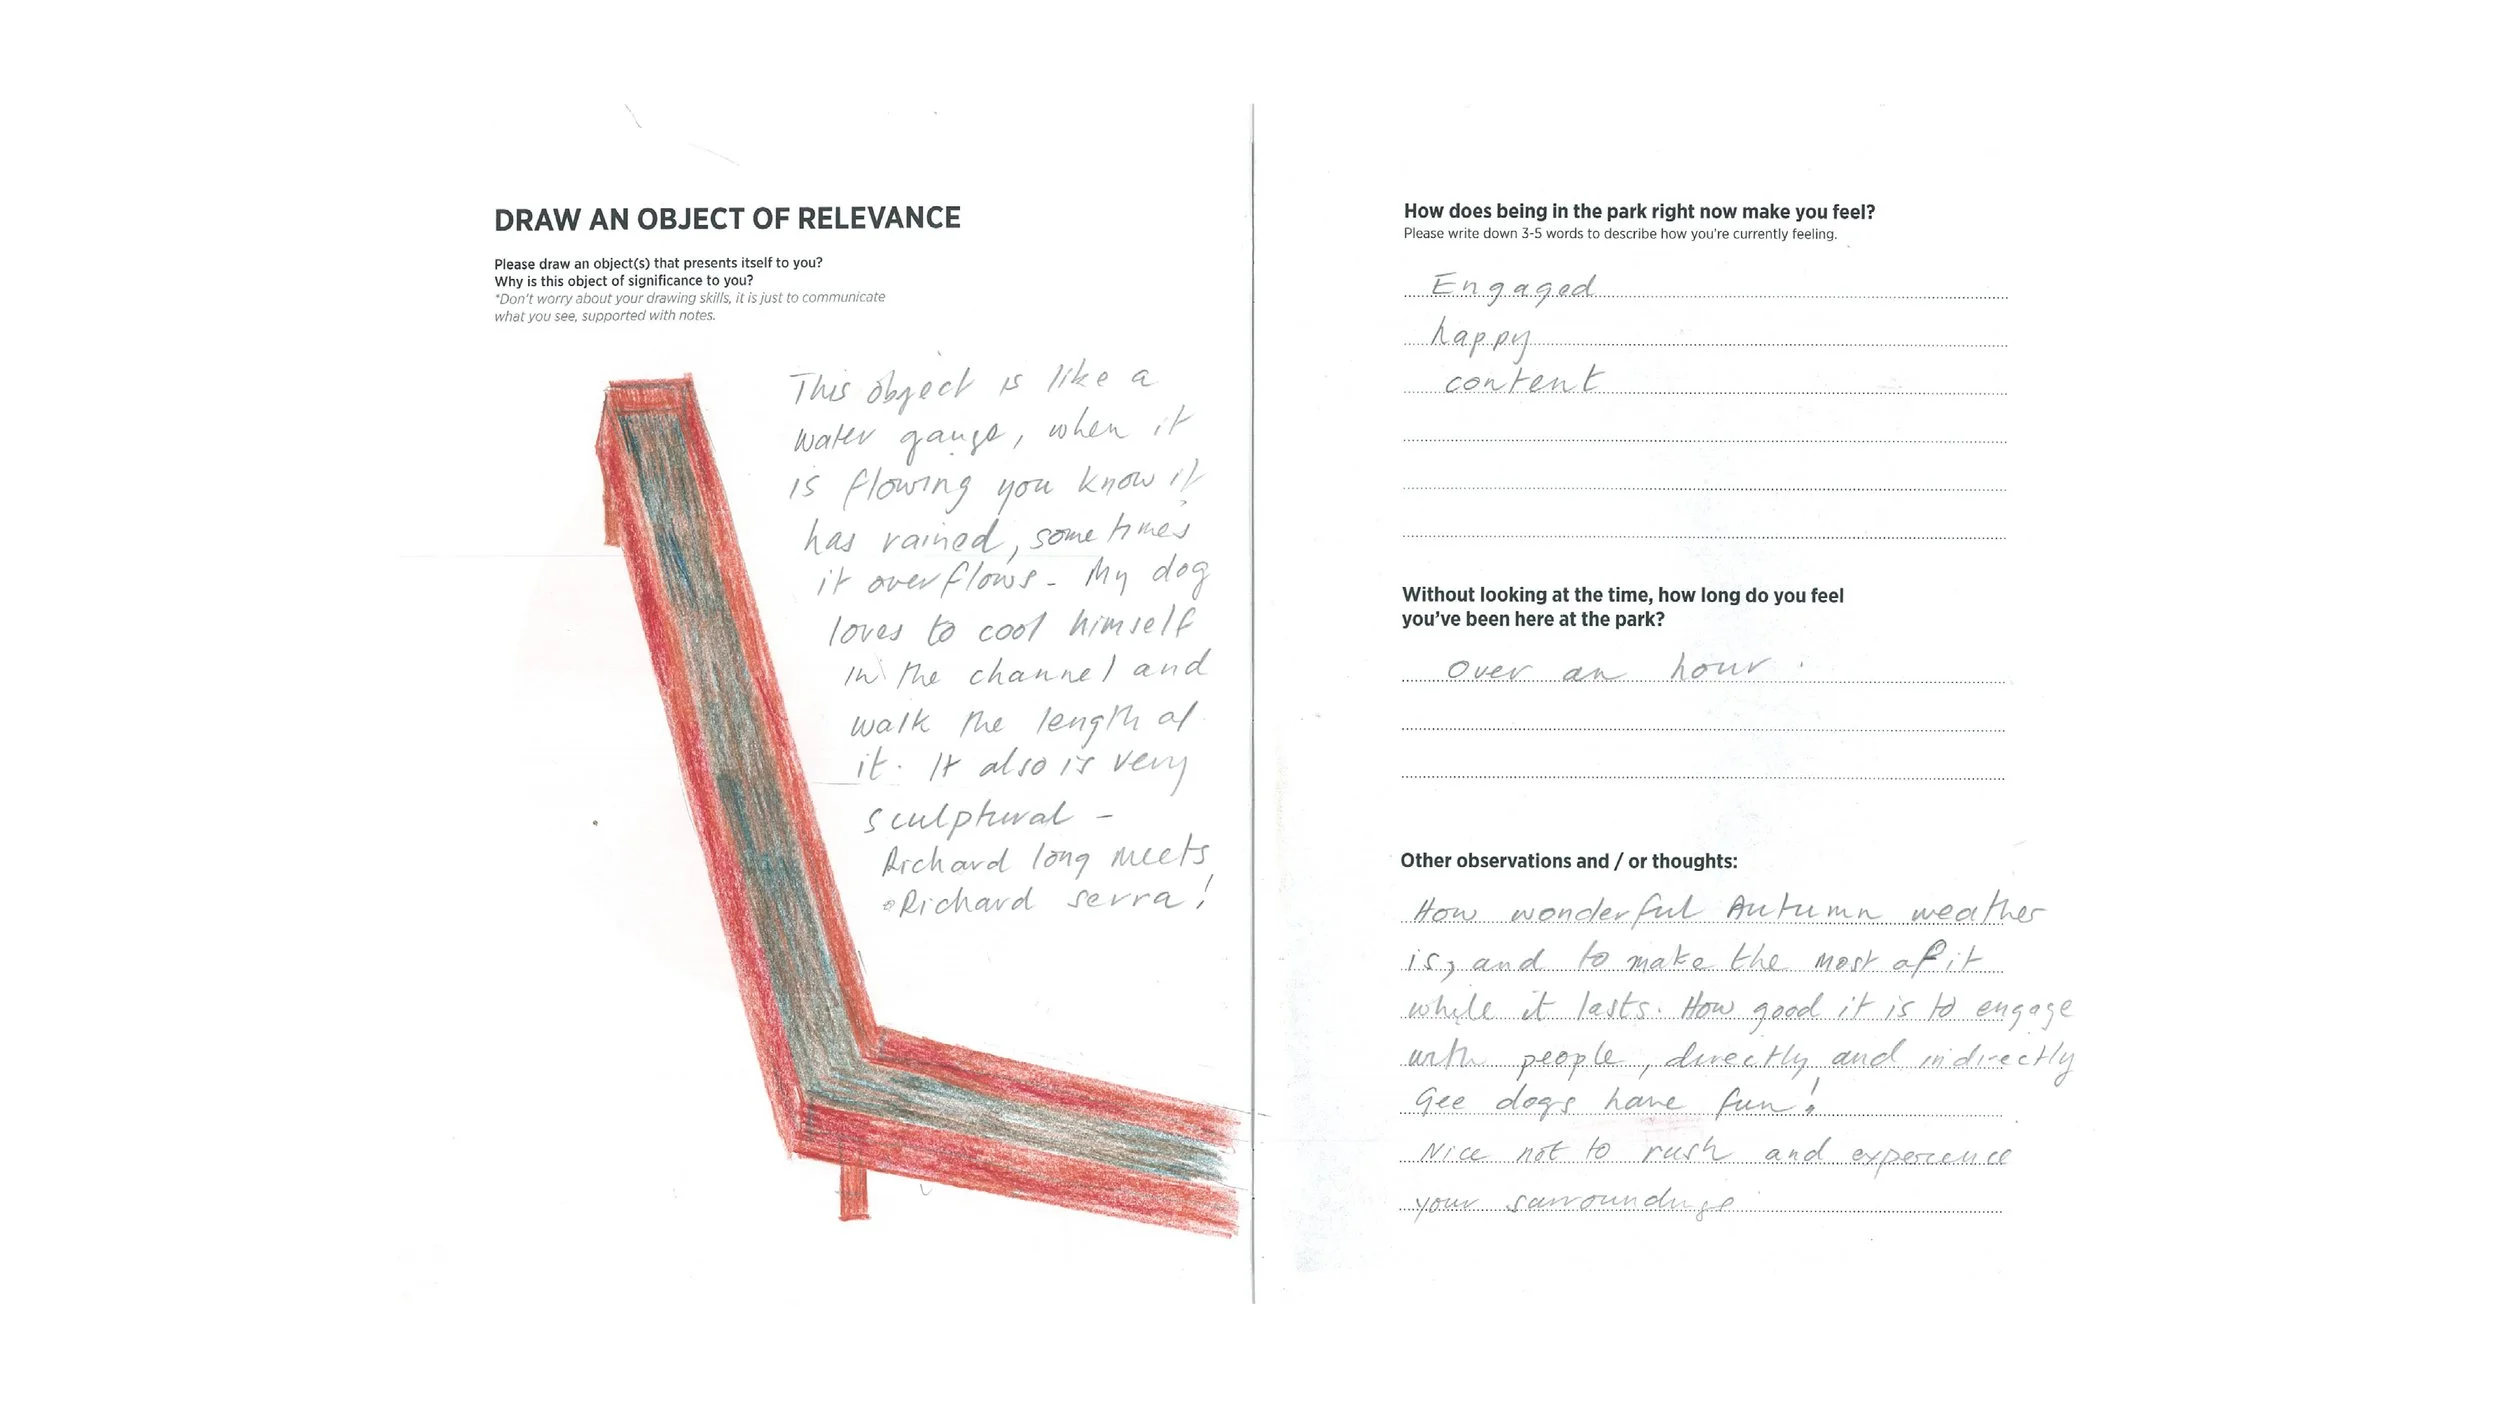 DRAW AN OBJECT OF RELEVANCE
Please draw an object(s) that presents itself to you?
Why is this object of significance to you?
*Don't worry about your drawing skills, it is just to communicate
what you see, supported with notes.
This object is like a
water gauge, when it
is flowing you know it
has rained, sometimes
it overflows - My dog
loves to cool himself
in the channel and
walk the length of
it. It also is very
sculptural -
Richard long meets
Richard serra!
How does being in the park right now make you feel?
Please write down 3-5 words to describe how you're currently feeling.
Engaged
happy
content
Without looking at the time, how long do you feel
you've been here at the park?
Over an hour.
Other observations and / or thoughts:
How wonderful Autumn weather
is, and to make the most of it
while it lasts. How good it is to engage
with people, directly and indirectly
Gee dogs have fun!
Nice not to rush and experience
your